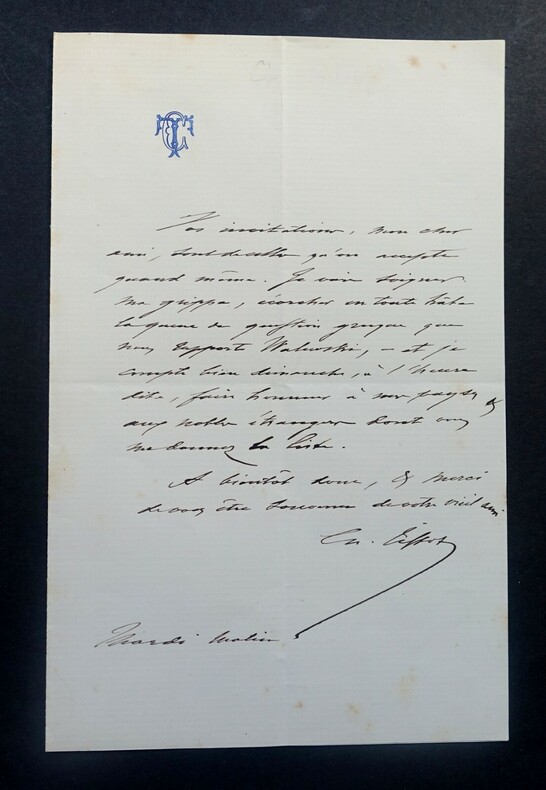 TC
Vos invitations, mon cher
ami, sont de celles qu'on accepte
quand même. Je vais soigner
ma grippe, écorcher en toute hâte
la queue de question grecque que
nous rapporte Walewski, – et je
compte bien dimanche, à l'heure
dite, faire honneur à son pays &
aux nobles étrangers dont vous
me donnez la liste.
A bientôt donc, & merci
de vous être souvenu de votre vieil ami
Ch.
Mardi matin